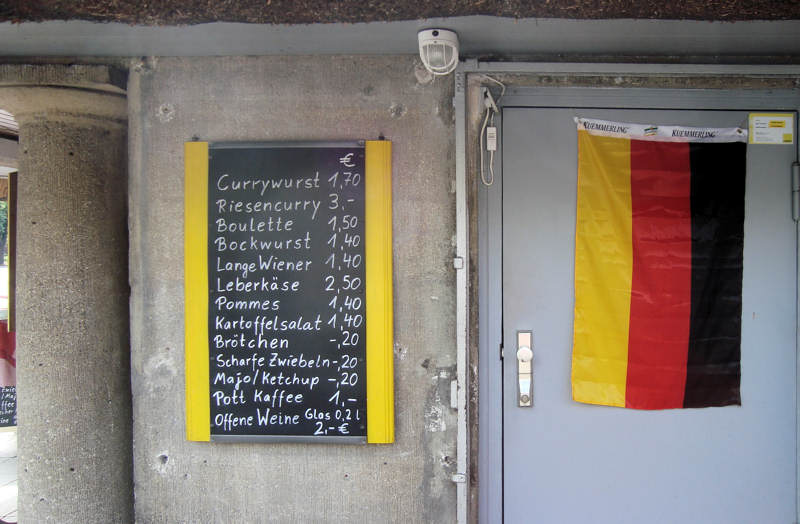 €
Currywurst 1,70
Riesencurry 3,-
Boulette 1,50
Bockwurst 1,40
Lange Wiener 1,40
Leberkäse 2,50
Pommes 1,40
Kartoffelsalat 1,40
Brötchen -,20
Scharfe Zwiebeln -,20
Majo/Ketchup -,20
Pott Kaffee 1,-
Offene Weine Glas 0,2 l
2,-€
KUEMMERLING KUEMMERLING